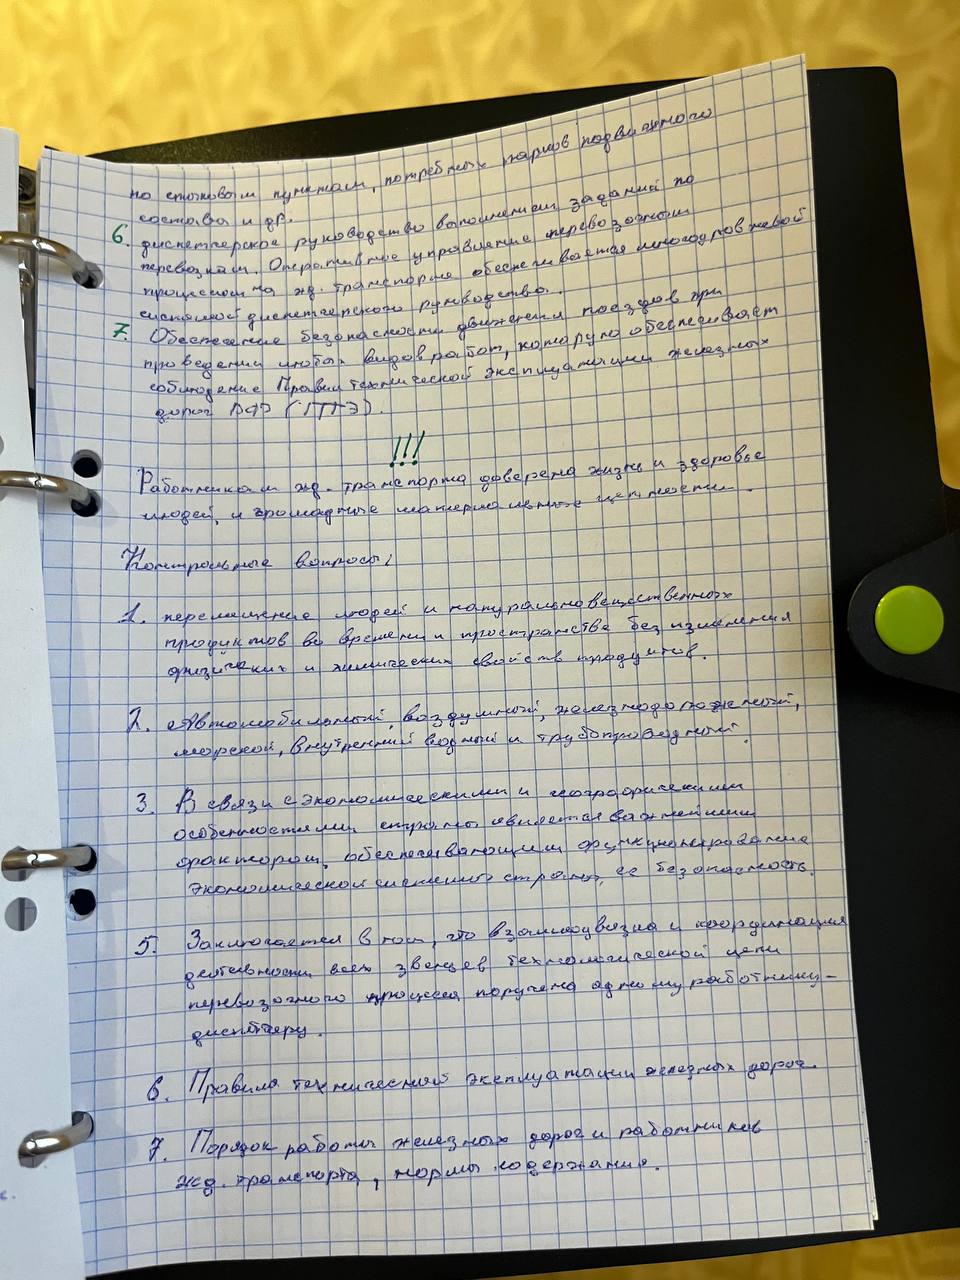 по стыковым пунктам, потребных парков подвижного
состава и др.
6. диспетчерское руководство выполнением заданий по
перевозкам. Оперативное управление перевозочным
процессом на жд. транспорте обеспечивается многоуровневой
системой диспетчерского руководства.
7. Обеспечение безопасности движения поездов при
проведении любых видов работ, которую обеспечивает
соблюдение Правил технической эксплуатации железных
дорог РФ (ПТЭ).
!!!
Работникам жд. транспорта доверена жизнь и здоровье
людей, и громадные материальные ценности.
Контрольные вопросы:
1. перемещение людей и натуральновещественных
продуктов во времени и пространстве без изменения
физических и химических свойств продуктов.
2. Автомобильный, воздушный, железнодорожный,
морской, внутренний водный и трубопроводный.
3. В связи с экономическими и географическими
особенностями страны является важнейшим
фактором, обеспечивающим функционирование
экономической системы страны, ее безопасность.
5. Заключается в том, что взаимоувязка и координация
деятельности всех звеньев технологической цепи
перевозочного процесса поручена одному работнику-
диспетчеру.
6. Правила технической эксплуатации железных дорог.
7. Порядок работы железных дорог и работников
жд. транспорта, нормы содержания.